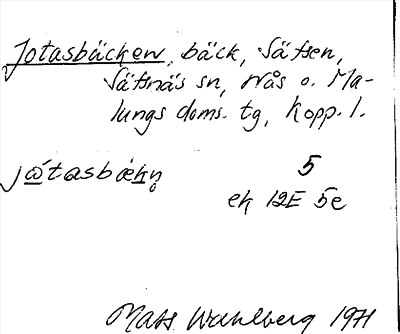 Jotasbäcken, bäck, Sätsen,
Sätsnäs sn, Nås o. Ma-
lungs doms. tg, Kopp. l.
jὼtasbækn̥ 5
ek 12E 5e
Mats Wahlberg 1971